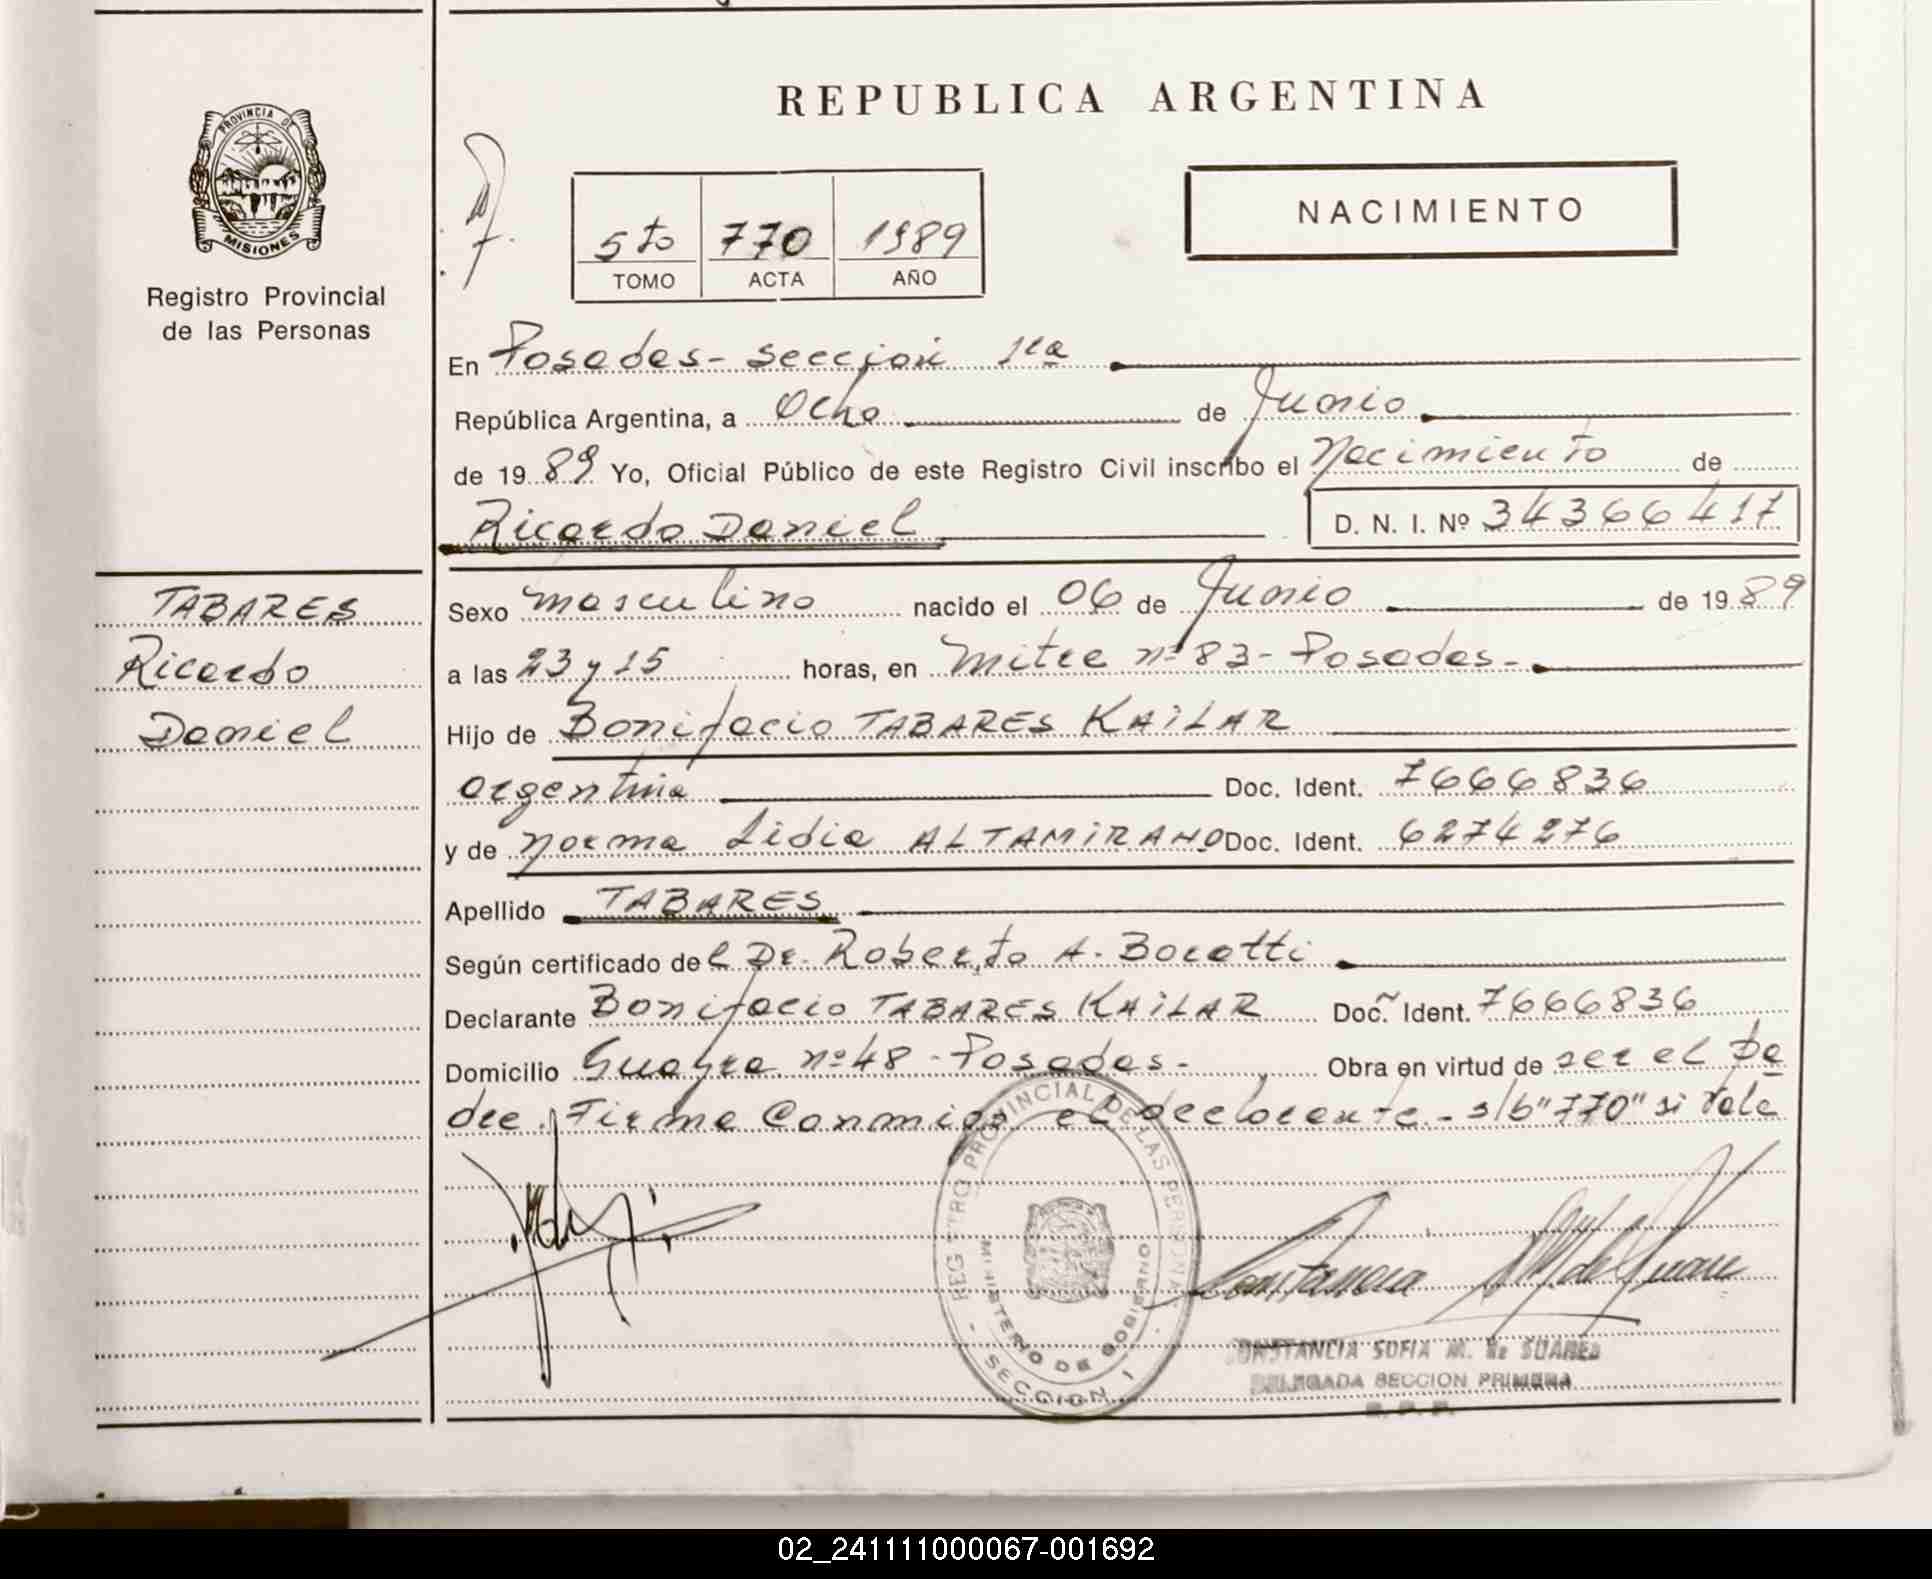 REPUBLICA ARGENTINA
PROVINCIA DE
MISIONES
Registro Provincial
de las Personas
5to 770 1989
TOMO ACTA AÑO
NACIMIENTO
En Posadas - sección 1ra
República Argentina, a Ocho de Junio
de 1989 Yo, Oficial Público de este Registro Civil inscribo el Nacimiento de
Ricardo Daniel D. N. I. Nº 34366417
TABARES
Ricardo
Daniel
Sexo masculino nacido el 06 de Junio de 1989
a las 23 y 15 horas, en Mitre nº 83 - Posadas -
Hijo de Bonifacio TABARES KAiLAR
argentina Doc. Ident. 7666836
y de Norma Lidia ALTAMiRANO Doc. Ident. 6274276
Apellido TABARES
Según certificado del Dr. Roberto A. Borotti
Declarante Bonifacio TABARES KAiLAR Doc. Ident. 7666836
Domicilio Guayra nº 48 - Posadas - Obra en virtud de ser el pa
dre. Firma Conmigo el declarante - s/b "770" si vale
REGISTRO PROVINCIAL DE LAS PERSONAS
MINISTERIO DE GOBIERNO
- SECCION 1 -
Constancia SM de Suarez
CONSTANCIA SOFIA M. de SUAREZ
DELEGADA SECCION PRIMERA
R. P. P.
02_241111000067-001692